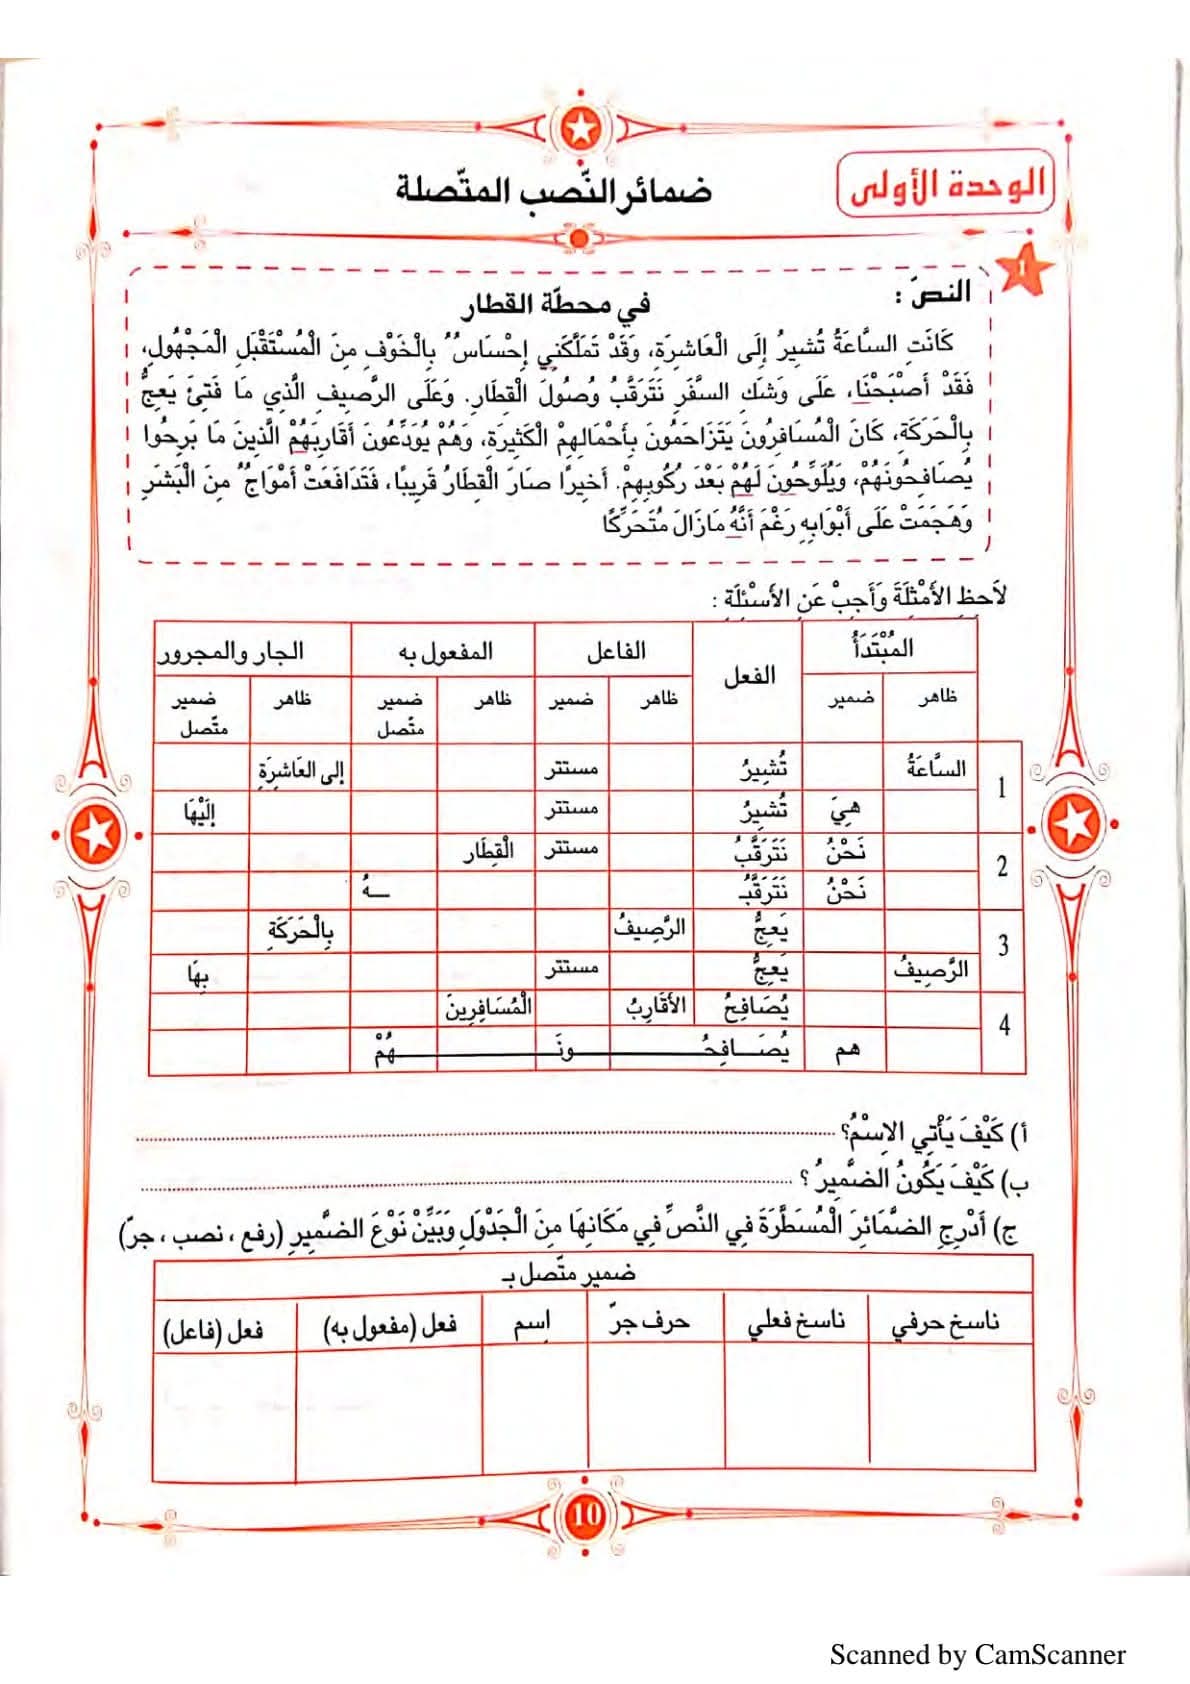 الوحدة الأولى
ضمائر النّصب المتّصلة
1
النصّ :
في محطّة القطار
كَانَتِ السَّاعَةُ تُشيرُ إلَى الْعَاشِرَةِ، وَقَدْ تَمَلَّكَنِي إحْسَاسٌ بِالْخَوْفِ مِنَ الْمُسْتَقْبَلِ الْمَجْهُولِ،
فَقَدْ أَصْبَحْنَا، عَلَى وَشَكِ السَّفَرِ نَتَرَقَّبُ وُصُولَ الْقِطَارِ. وَعَلَى الرَّصِيفِ الَّذِي مَا فَتِئَ يَعِجُّ
بِالْحَرَكَةِ، كَانَ الْمُسَافِرُونَ يَتَزَاحَمُونَ بِأَحْمَالِهِمْ الْكَثِيرَةِ، وَهُمْ يُوَدِّعُونَ أَقَارِبَهُمْ الَّذِينَ مَا بَرِحُوا
يُصَافِحُونَهُمْ، وَيُلَوِّحُونَ لَهُمْ بَعْدَ رُكُوبِهِمْ. أخِيرًا صَارَ الْقِطَارُ قَرِيبًا، فَتَدَافَعَتْ أَمْوَاجٌ مِنَ الْبَشَرِ
وَهَجَمَتْ عَلَى أَبْوَابِهِ رَغْمَ أَنَّهُ مَازَالَ مُتَحَرِّكًا
لاَحِظِ الأَمْثِلَةَ وَأَجِبْ عَنِ الأَسْئِلَةِ :
المُبْتَدَأُ الفعل الفاعل المفعول به الجار والمجرور
ظاهر ضمير ظاهر ضمير ظاهر ضمير متّصل ظاهر ضمير متّصل
1 السَّاعَةُ تُشِيرُ مستتر إلى العَاشِرَةِ
هِيَ تُشِيرُ مستتر إلَيْهَا
2 نَحْنُ نَتَرَقَّبُ مستتر الْقِطَار
نَحْنُ نَتَرَقَّبُـ ـهُ
3 يَعِجُّ الرَّصِيفُ بِالْحَرَكَةِ
الرَّصِيفُ يَعِجُّ مستتر بِهَا
4 يُصَافِحُ الأَقَارِبُ الْمُسَافِرِينَ
هم يُصَـافِحُـونَـهُمْ
أ) كَيْفَ يَأْتِي الاِسْمُ؟
ب) كَيْفَ يَكُونُ الضَّمِيرُ ؟
ج) أَدْرِجِ الضَّمَائِرَ الْمُسَطَّرَةَ فِي النَّصِّ فِي مَكَانِهَا مِنَ الْجَدْوَلِ وَبَيِّنْ نَوْعَ الضَّمِيرِ (رفع ، نصب ، جرّ)
ضمير متّصل بـ
ناسخ حرفي ناسخ فعلي حرف جرّ اِسم فعل (مفعول به) فعل (فاعل)
10
Scanned by CamScanner